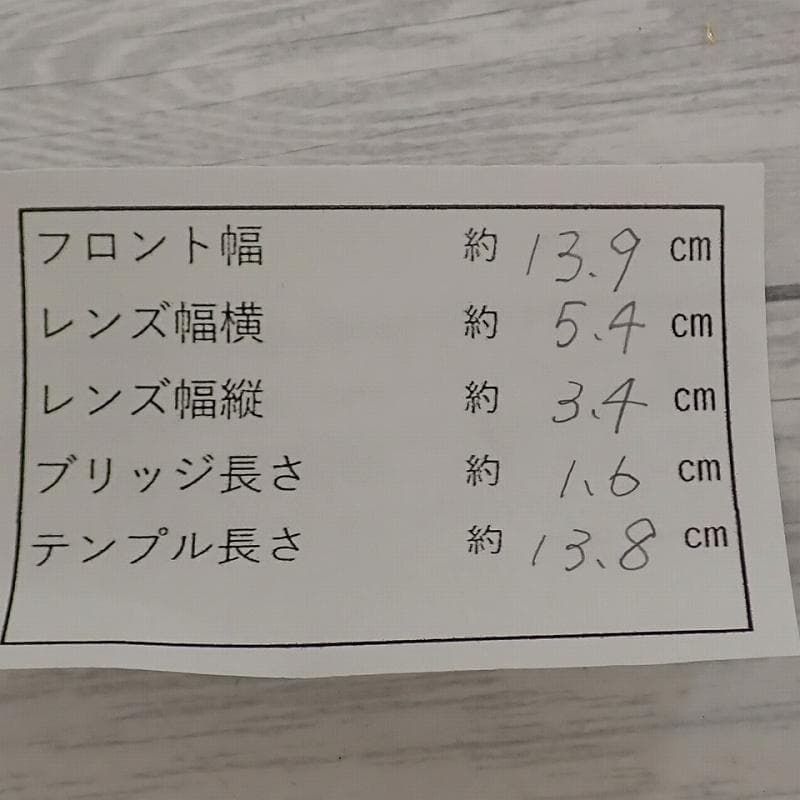 フロント幅 約 13.9 cm
レンズ幅横 約 5.4 cm
レンズ幅縦 約 3.4 cm
ブリッジ長さ 約 1.6 cm
テンプル長さ 約 13.8 cm